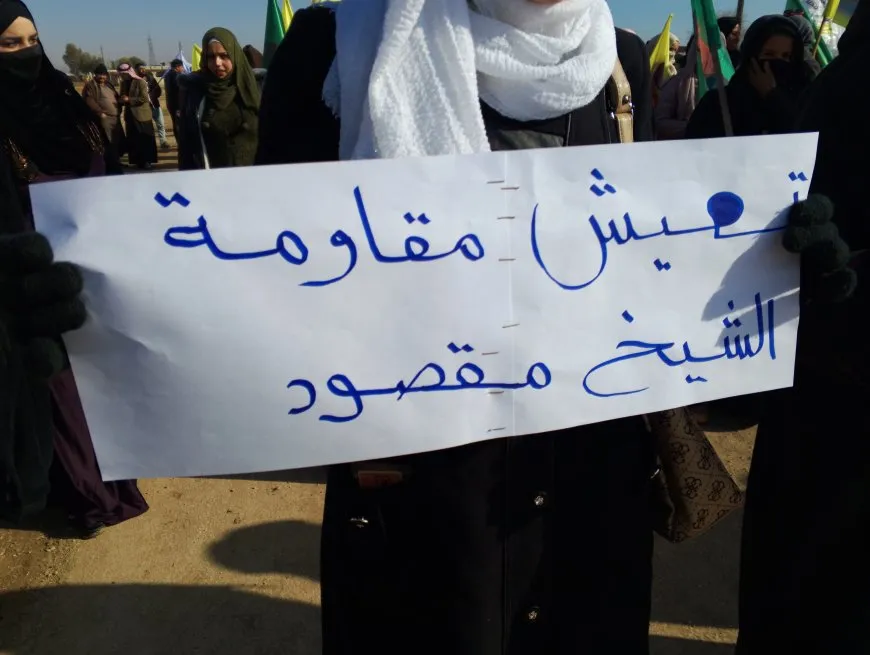 تعيش مقاومة
الشيخ مقصود